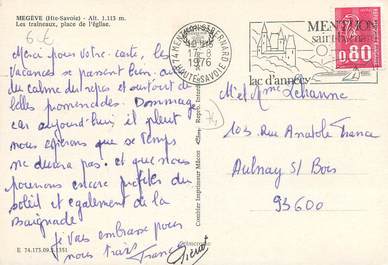 MEGÈVE (Hte-Savoie) - Alt. 1.113 m.
Les traîneaux, place de l'église.
Merci pour votre carte, les
vacances se passent bien au
du calme du repos et surtout de
belles promenades. Dommage
car aujourd'hui il pleut
nous espérons que ce temps
ne durera pas et que nous
pourrons encore profiter du
soleil et également de la
Baignade.
Je vous embrasse pour
nous trois
E. 74.173.09.
Combier Imprimeur Mâcon
74 MENTHON ST BERNARD
17-8
1976
HAUTE SAVOIE
MENTHON
saint-bernard
lac d'annecy
0,80
M et Mme Lehanne
101 Rue Anatole France
Aulnay s/ Bois
93600